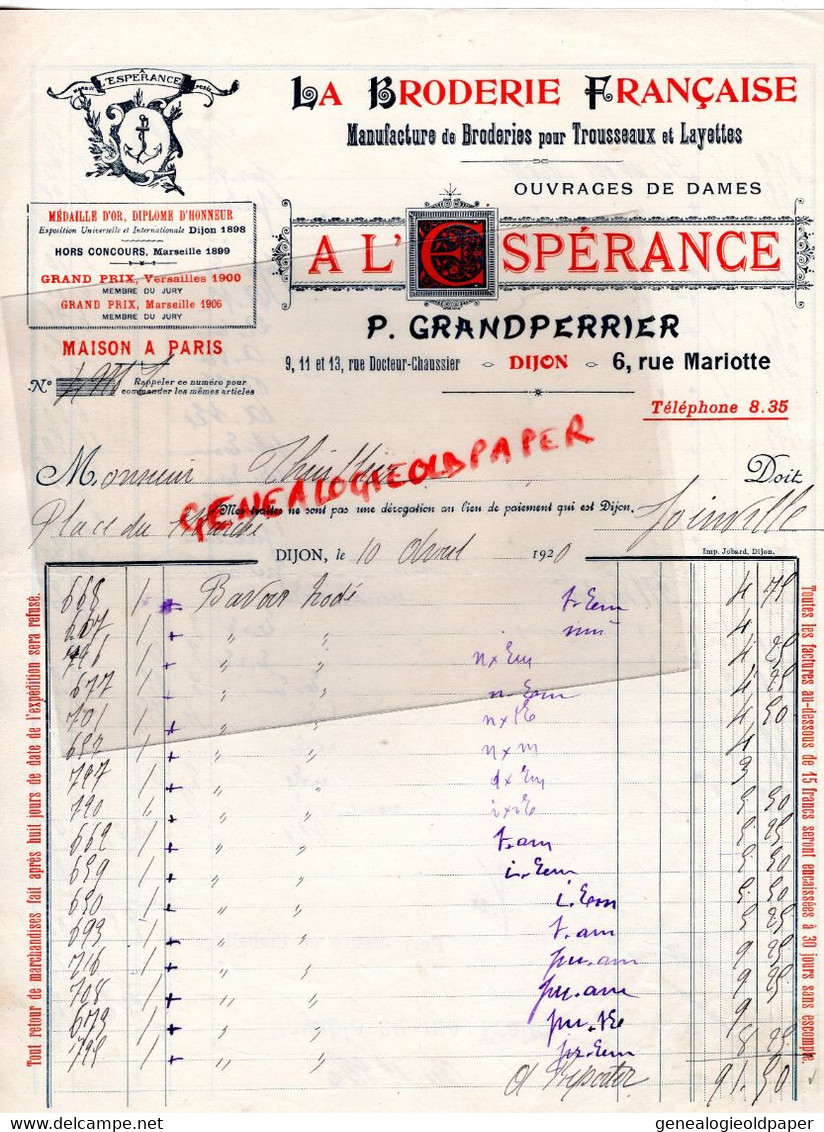 À
L'ESPÉRANCE
LA BRODERIE FRANÇAISE
Manufacture de Broderies pour Trousseaux et Layettes
OUVRAGES DE DAMES
MÉDAILLE D'OR, DIPLOME D'HONNEUR
Exposition Universelle et Internationale Dijon 1898
HORS CONCOURS, Marseille 1899
GRAND PRIX, Versailles 1900
MEMBRE DU JURY
GRAND PRIX, Marseille 1906
MEMBRE DU JURY
A L'ESPÉRANCE
P. GRANDPERRIER
MAISON A PARIS
9, 11 et 13, rue Docteur-Chaussier DIJON 6, rue Mariotte
No Rappeler ce numéro pour
commander les mêmes articles
Téléphone 8.35
GENEALOGIEOLDPAPER
Monsieur Doit
Place du Marché Joinville
Mes traites ne sont pas une dérogation au lieu de paiement qui est Dijon.
DIJON, le 10 Avril 1920
Imp. Jobard, Dijon.
Tout retour de marchandises fait après huit jours de date de l'expédition sera refusé.
Toutes les factures au-dessous de 15 francs seront encaissées à 30 jours sans escompte.
668 1 Bavoir brodé 4 75
1 " " 4
1 " " 4 25
677 1 " " 4 75
701 1 " " 4 50
1 " " 4
797 1 " " 3
790 " "  5 50
669 1 " " t.am 5 25
659 1 " " 5 50
650 1 " " 5 50
693 1 " " t.am 5 25
716 1 " " pu.am 9 25
708 1 " " pu.am 9 25
673 1 " " 9
1 " " 8 25
A Reporter 91.50
genealogieoldpaper